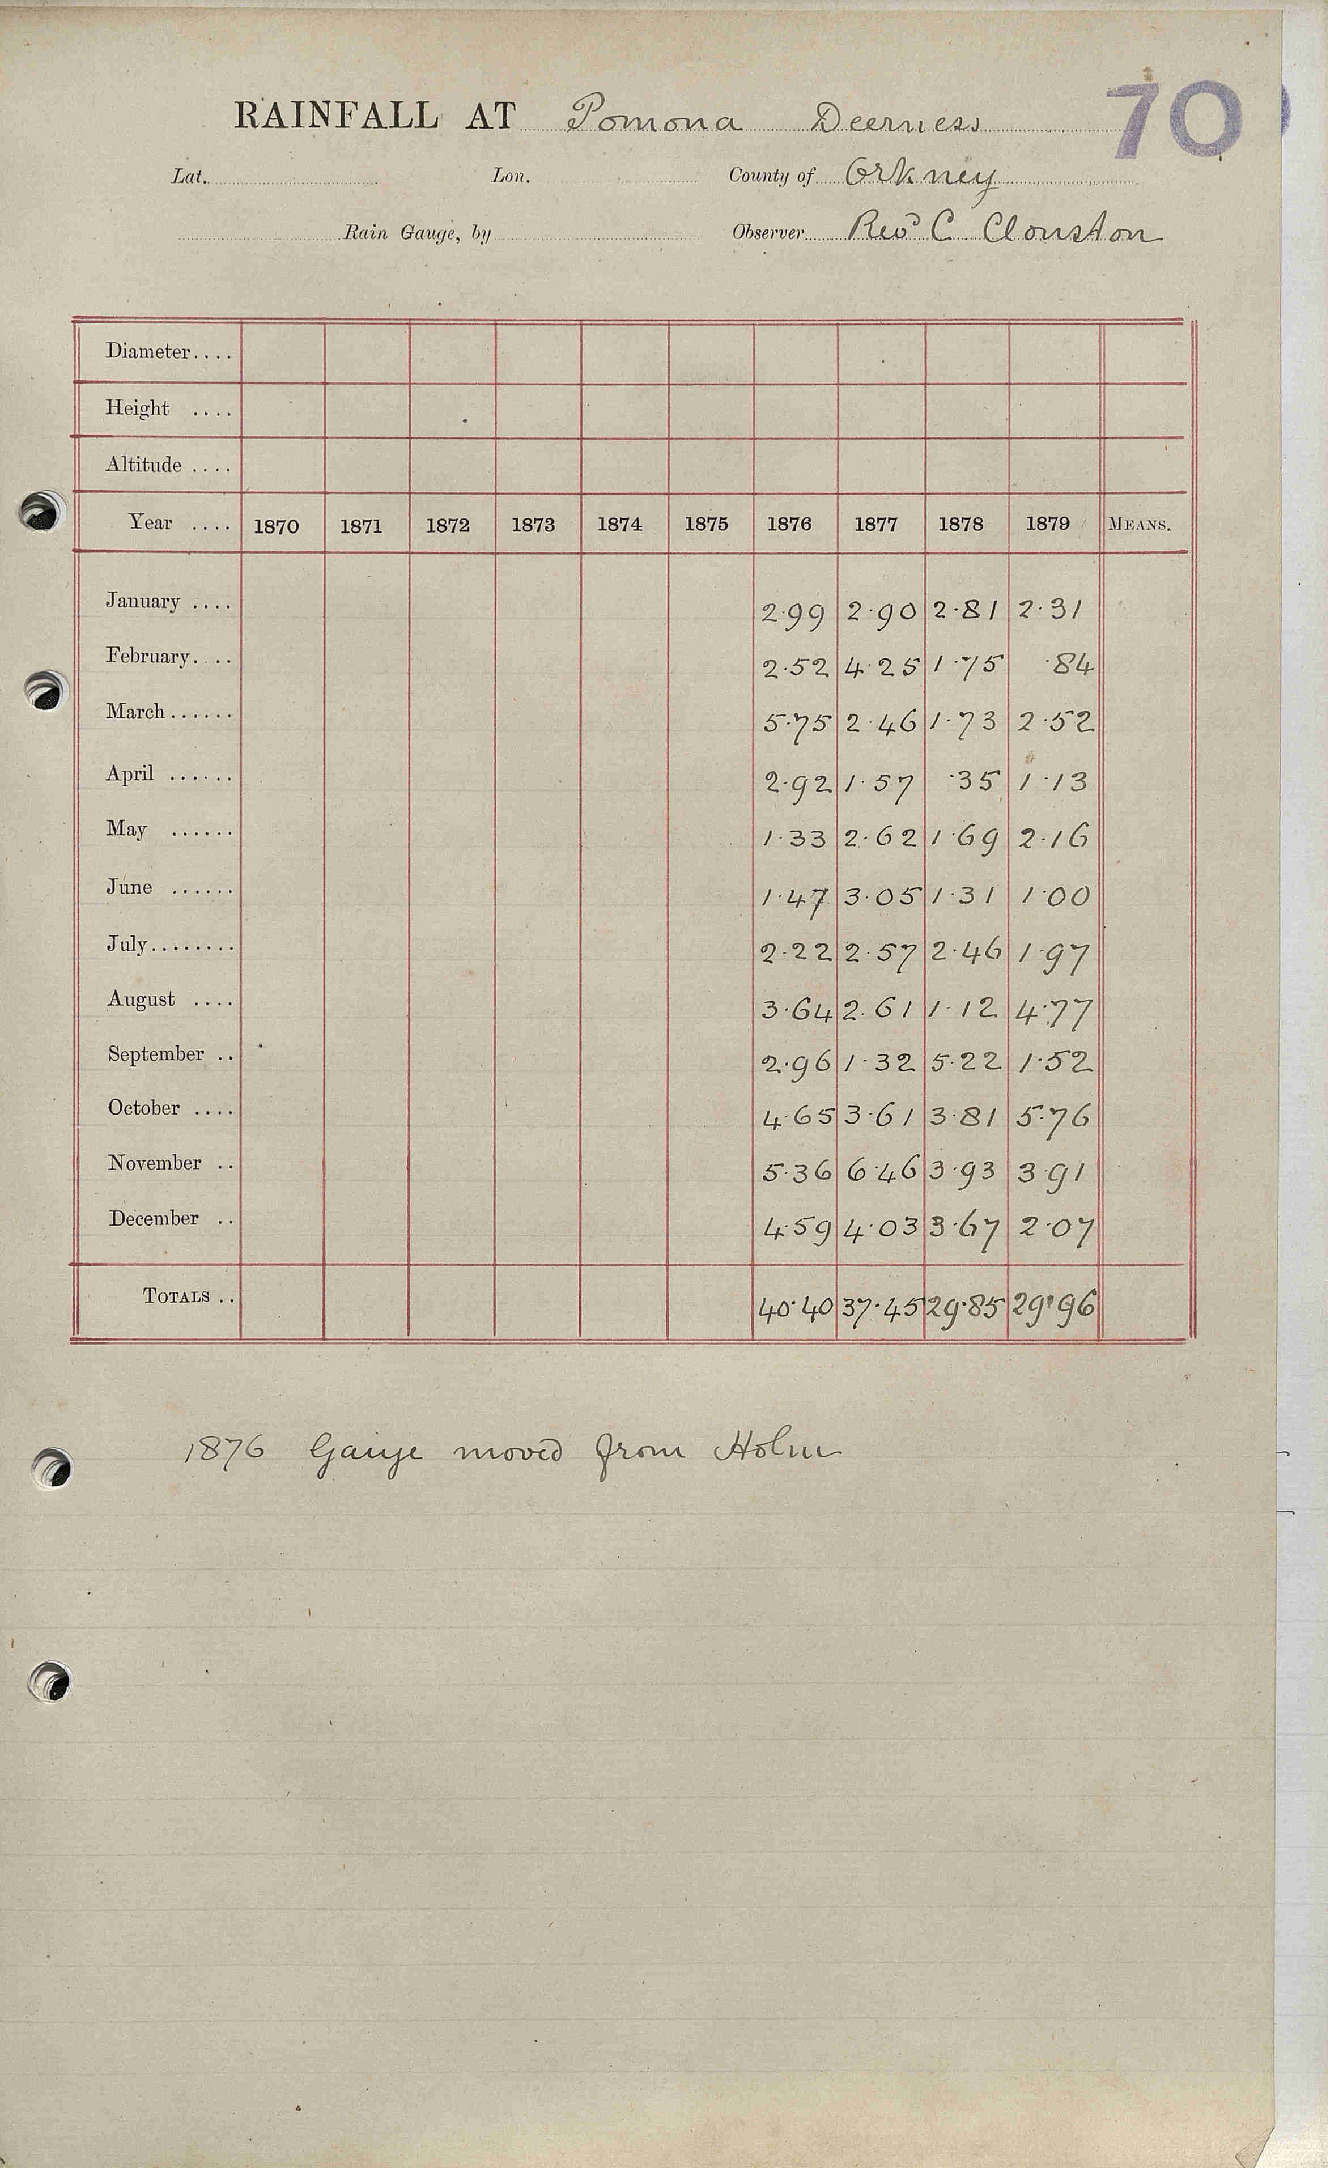 70
RAINFALL AT Pomona Deerness
Lat. Lon. County of Orkney
Rain Gauge, by Observer Revd C Clouston
Diameter....
Height ....
Altitude ....
Year .... 1870 1871 1872 1873 1874 1875 1876 1877 1878 1879 MEANS.
January .... 2.99 2.90 2.81 2.31
February.... 2.52 4.25 1.75 .84
March...... 5.75 2.46 1.73 2.52
April ...... 2.92 1.57 .35 1.13
May ...... 1.33 2.62 1.69 2.16
June ...... 1.47 3.05 1.31 1.00
July........ 2.22 2.57 2.46 1.97
August .... 3.64 2.61 1.12 4.77
September .. 2.96 1.32 5.22 1.52
October .... 4.65 3.61 3.81 5.76
November .. 5.36 6.46 3.93 3.91
December .. 4.59 4.03 3.67 2.07
TOTALS .. 40.40 37.45 29.85 29.96
1876 Gauge moved from Holm